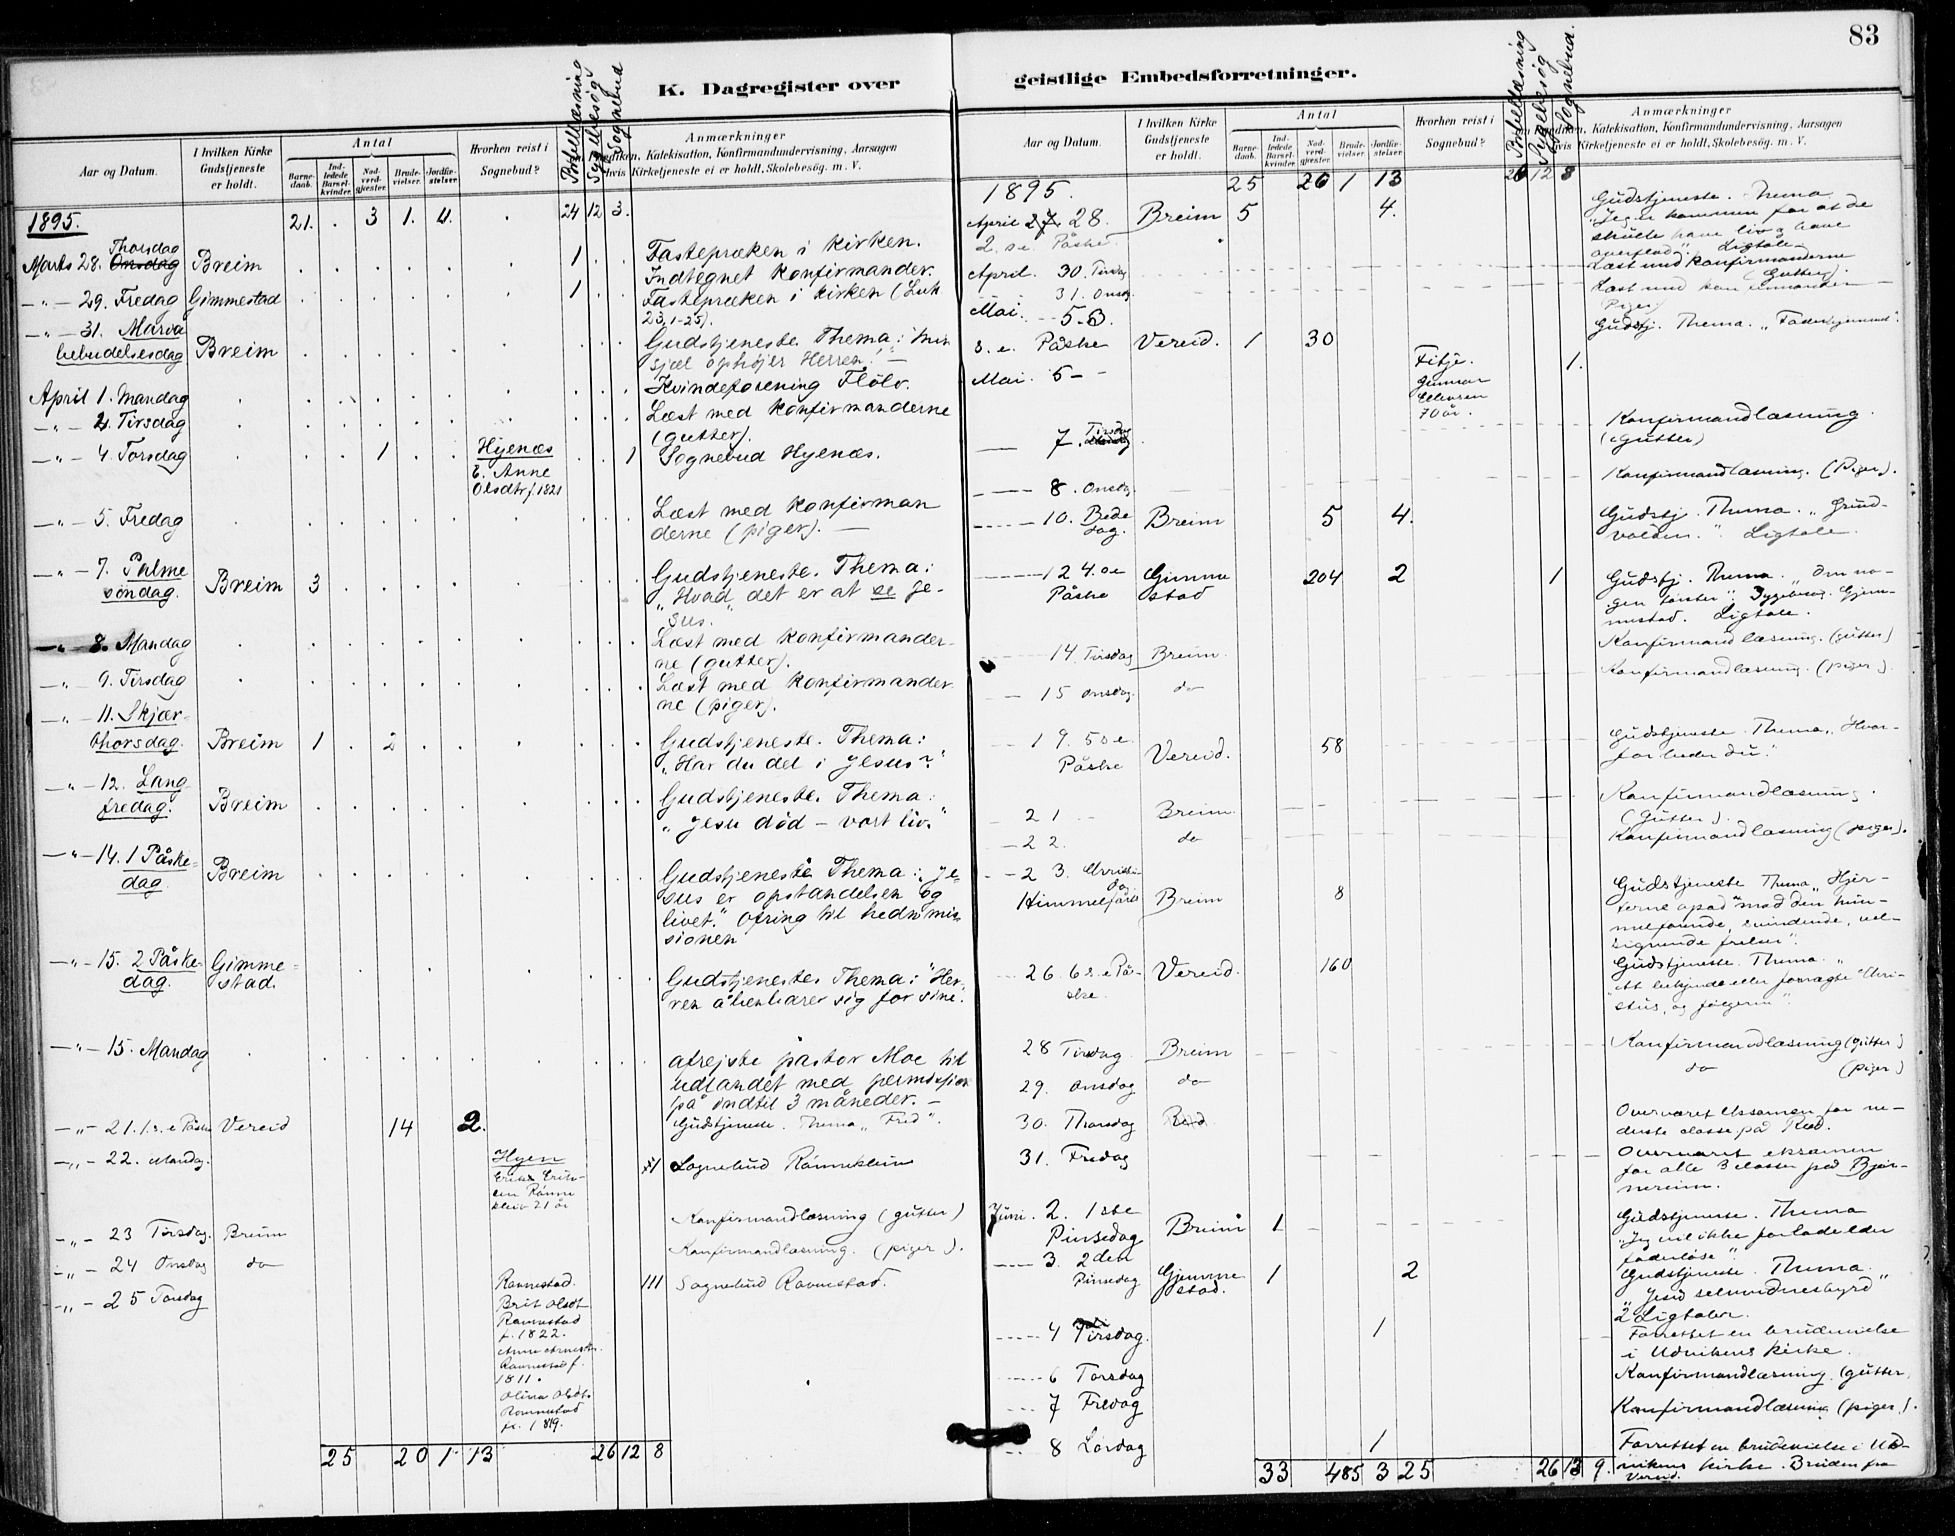 83
K. Dagregister over
Aar og Datum.
I hvilken Kirke Gudstjeneste er holdt.
Antal
Barne-daab.
Ind-ledede Barsel-kvinder.
Nad-verd-gjester
Brude-vielser.
Jordfæ-stelser
Hvorhen reist i Sognebud?
Sygebesøg
Sognebud
Anmærkninger
Katekisation, Konfirmandundervisning, Aarsagen
hvis Kirketjeneste ei er holdt, Skolebesög. m. V.
1895. 21. . 3 1. 4. . 24 12 3.
Marts 28. Thorsdag Breim 1 Fastepræken i kirken.
Indtegnet konfirmander.
-"- 29. Fredag Gimmestad 1 Fastepræken i kirken (Luk
23,1-25).
-"- 31. Mariæ
bebudelsesdag Breim Gudstjeneste. Thema: "Min
sjæl ophøjer Herren." -
April 1. Mandag Kvindeforening Flölo.
-"- 2. Tirsdag Læst med konfirmanderne
(gutter).
-"- 4. Torsdag 1 Hyenæs 1 Sognebud Hyenæs.
E. Anne
Olsdtr f. 1821
-"- 5. Fredag Læst med konfirman
derne (piger). -
-"- 7. Palme
söndag. Breim 3 Gudstjeneste. Thema:
"Hvad det er at se Je-
sus.
-"- 8. Mandag Læst med konfirmander-
ne (gutter).
-"- 9. Tirsdag Læst med konfirmander
ne (piger).
-"- 11. Skjær-
thorsdag. Breim 1 . 2 Gudstjeneste. Thema:
"Har du del i Jesus?"
-"- 12. Lang
fredag. Breim Gudstjeneste. Thema:
"Jesu död - vort liv."
-"- 14. 1 Påske-
dag Breim Gudstjeneste Thema: "Je-
sus er opstandelsen og
livet." Ofring til hednimis
sionen
-"- 15. 2 Påske-
dag. Gimme-
stad. Gudstjeneste. Thema: "Her-
ren åbenbarer sig for sine.
-"- 15. Mandag afrejste pastor Moe til
udlandet med permission
på indtil 3 måneder. -
-"- 21. 1. s. e Påske Vereid 14 2. Gudstjeneste. Thema "Fred".
-"- 22. Mandag. Hyen 1 Sognebud Rønneklein
21 år
-"- 23 Tirsdag. Breim Konfirmandlæsning (gutter)
-"- 24 Onsdag do Konfirmandlæsning. (piger).
-"- 25 Torsdag Ravnestad. III Sognebud Ravnestad.
Brit Olsdt
Ravnestad
f. 1822.
Ravnestad f.
1811.
Olina Olsdt.
Ravnestad
f. 1819.
25 20 1 13 26 12 8
geistlige Embedsforretninger.
Aar og Datum.
I hvilken Kirke Gudstjeneste er holdt.
Antal
Barne-daab.
Ind-ledede Barsel-kvinder.
Nad-verd-gjester
Brude-vielser.
Jordfæ-stelser
Hvorhen reist i Sognebud?
Sygebesøg
Sognebud.
Anmærkninger
Katekisation, Konfirmandundervisning, Aarsagen
hvis Kirketjeneste ei er holdt, Skolebesög. m. V.
1895. 25 20 1 13 26 12 8
April 28. Breim 5 4. Gudstjeneste. Thema
2. s. e. Påske. "Jeg er kommen for at de
skulle have liv og have
overflod". Ligtale
April. 30. Tirsdag Læst med konfirmanderne
(Gutter).
31. Onsd. Læst med konfirmander
(Piger)
Mai. 5. 3.
s. e. Påske Vereid. 1 30 Gudstj. Thema. "Faderhjemmet".
Mai. 5 - Fitje. 1.
Gunnar
Ellevsen
70 år.
7. Tirsdag Konfirmandlæsning.
(Gutter)
8. Onsdag Konfirmandlæsning. (Piger).
10. Bede
dag. Breim 5 4. Gudstj. Thema. "Grund-
volden." Ligtale.
12 4. s e
Påske Gimme
stad 204 2 1 Gudstj. Thema. "Om no-
gen tørster". Sygebesøg. Gjem-
mestad. Ligtale.
14. Tirsdag Breim. Konfirmandlæsning. (gutter)
15 Onsdag. do Konfirmandlæsning. (piger).
19. 5 s e.
Påske Vereid. 58 Gudstjeneste. Thema "Hvor-
for leder du."
21 Breim Konfirmandlæsning.
(Gutter).
22. do Konfirmandlæsning (piger).
23. Christi
Himmelfartsdag Breim 8 Gudstjeneste Thema "Hjer-
terne opad mod den him-
melfarende, svindende, vel-
signende frelser".
26. 6 s. e På-
ske. Vereid. 160 Gudstjeneste. Thema. "
At bekjende eller fornægte Chri-
stus, og følgerne".
28 Tirsdag Breim Konfirmandlæsning (gutter)
29. Onsdag do do (piger)
30. Thorsdag Red. Overværet Eksamen for ne-
derste classe på Red.
31. Fredag Overværet eksamen
for alle 3 classer på Bjør-
nereim.
Juni. 2. 1ste
Pinsedag Breim 1 Gudstjeneste. Thema
"Jeg vil ikke forlade eder
faderløse".
3. 2den
Pinsedag Gjemme
stad. 1 2 Gudstjeneste. Thema.
"Jesu selvvidnesbyrd"
2 Ligtaler.
4 Tirsdag. 1 Forrettet en brudevielse
i Udvikens kirke.
6 Torsdag Konfirmandlæsning. (gutter
7 Fredag Konfirmandlæsning (piger).
8 Lørdag 1 Forrettet en brudevielse i Ud-
vikens kirke. Bruden fra
Vereid.
33 485 3 25 26 13 9.